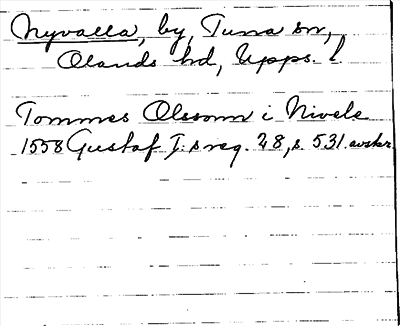 Nyvalla, by, Tuna sn,
Olands hd, Upps. l
Tommes Olssonn i Nivele
1558 Gustaf I:s reg. 28, s. 531. avskr.